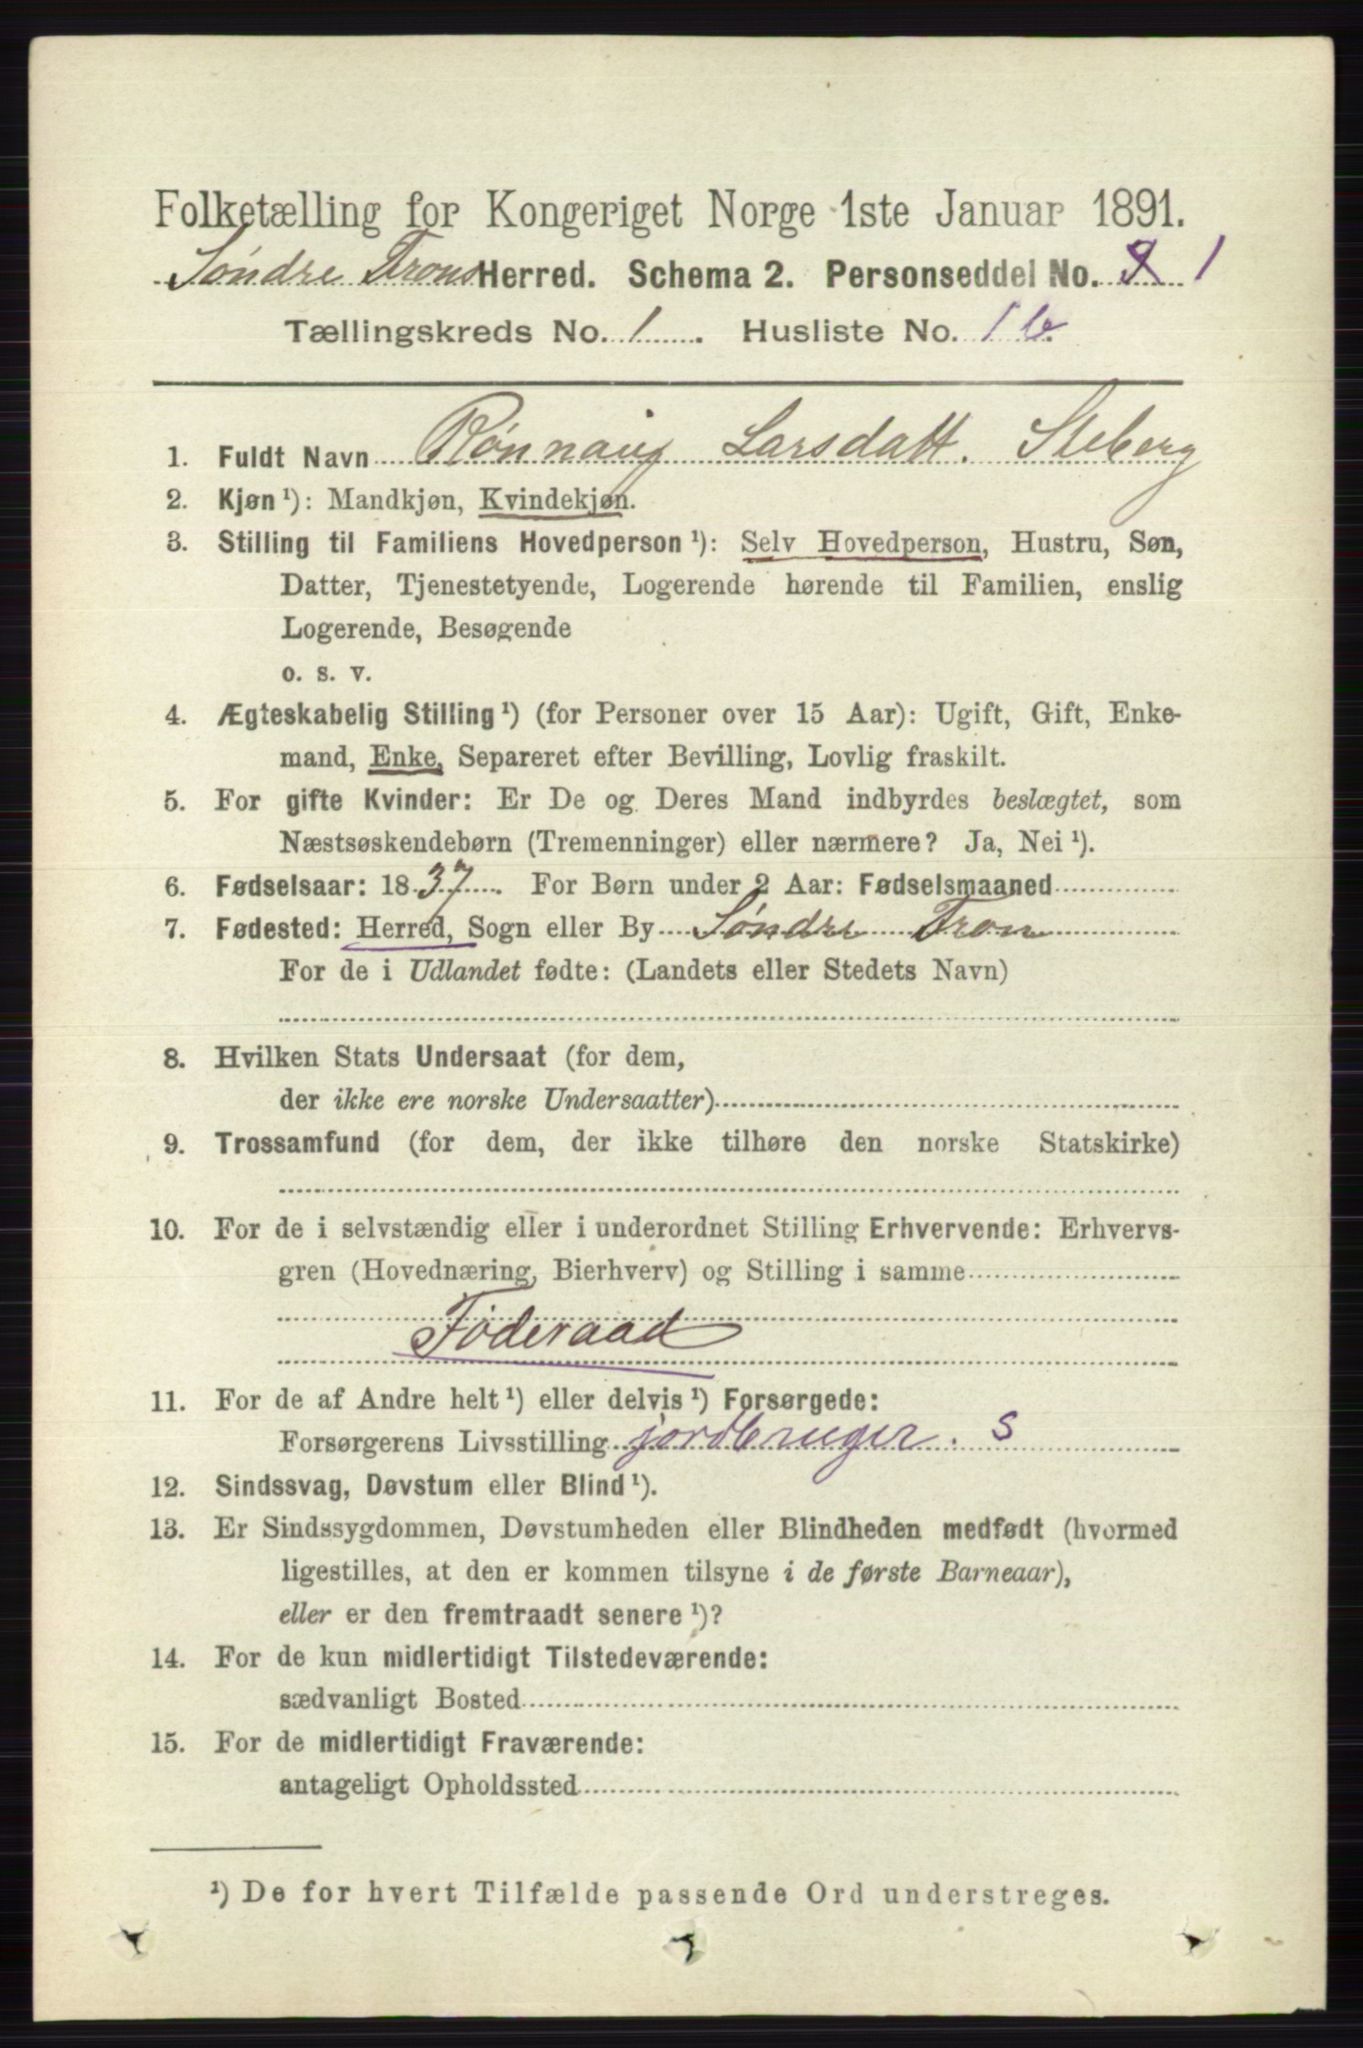 Folketælling for Kongeriget Norge 1ste Januar 1891.
Søndre Frons Herred. Schema 2. Personseddel No. 1
Tællingskreds No. 1. Husliste No. 1 b.
1. Fuldt Navn Rønnaug Larsdatt. Steberg
2. Kjøn¹): Mandkjøn, Kvindekjøn.
3. Stilling til Familiens Hovedperson¹): Selv Hovedperson, Hustru, Søn,
Datter, Tjenestetyende, Logerende hørende til Familien, enslig
Logerende, Besøgende
o. s. v.
4. Ægteskabelig Stilling¹) (for Personer over 15 Aar): Ugift, Gift, Enke-
mand, Enke, Separeret efter Bevilling, Lovlig fraskilt.
5. For gifte Kvinder: Er De og Deres Mand indbyrdes beslægtet, som
Næstsøskendebørn (Tremenninger) eller nærmere? Ja, Nei¹).
6. Fødselsaar: 1837. For Børn under 2 Aar: Fødselsmaaned
7. Fødested: Herred, Sogn eller By Søndre Fron
For de i Udlandet fødte: (Landets eller Stedets Navn)
8. Hvilken Stats Undersaat (for dem,
der ikke ere norske Undersaatter)
9. Trossamfund (for dem, der ikke tilhøre den norske Statskirke)
10. For de i selvstændig eller i underordnet Stilling Erhvervende: Erhvervs-
gren (Hovednæring, Bierhverv) og Stilling i samme
Føderaad
11. For de af Andre helt¹) eller delvis¹) Forsørgede:
Forsørgerens Livsstilling jordbruger. S
12. Sindssvag, Døvstum eller Blind¹).
13. Er Sindssygdommen, Døvstumheden eller Blindheden medfødt (hvormed
ligestilles, at den er kommen tilsyne i de første Barneaar),
eller er den fremtraadt senere¹)?
14. For de kun midlertidigt Tilstedeværende:
sædvanligt Bosted
15. For de midlertidigt Fraværende:
antageligt Opholdssted
¹) De for hvert Tilfælde passende Ord understreges.